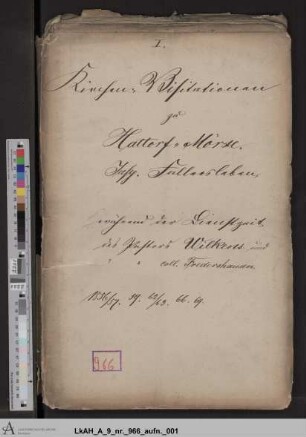 I.
Kirchen-Visitationen
zu
Hattorf u. Mörse.
Insp. Fallersleben.
während der Dienstzeit
des Pastors Wilkens und
" " coll.
1856/57. 59.
966
LkAH_A_9_nr._966_aufn._001